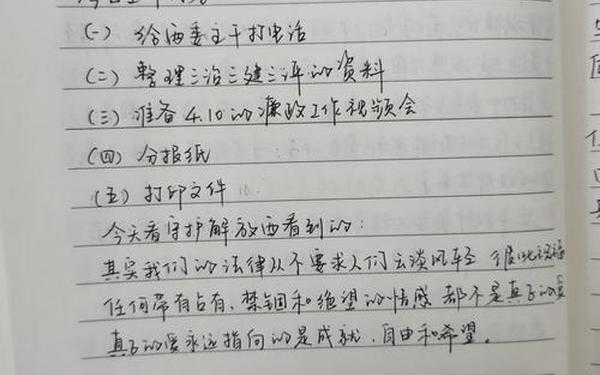 (一) 给两委主干打电话
(二) 整理三治三建三评的资料
(三) 准备4.10的廉政工作视频会
(四) 分报纸
(五) 打印文件
今天看守护解放西看到的:
其实我们的法律从不要求人们云淡风轻 彼此祝福
任何带有占有、禁锢和绝望的情感 都不是真正的爱
真正的爱永远指向的是成就、自由和希望。